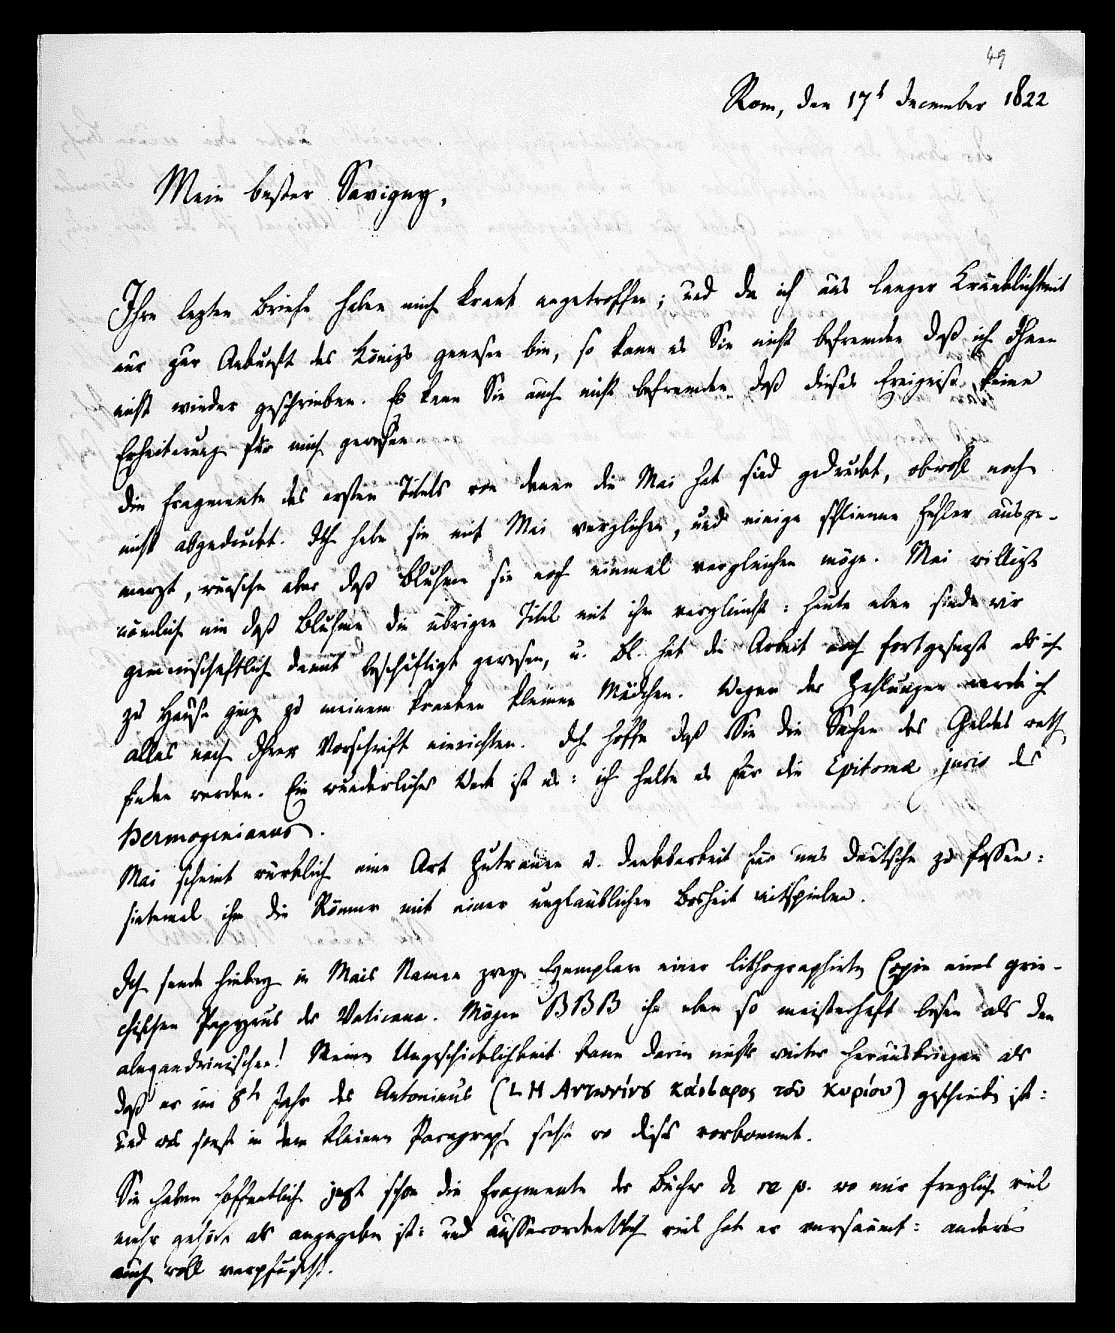 49
Rom, den 17t December 1822
Mein bester Savigny,
Ihre lezten Briefe haben mich krank angetroffen; und da ich aus langer Kränklichkeit
nur zur Ankunft des Königs genesen bin, so kann es Sie nicht befremden daß ich Ihnen
nicht wieder geschrieben. Es kann Sie auch nicht befremden daß dieses Ereigniß keine
Erheiterung für mich gewesen.
Die Fragmente des ersten Titels von denen die Mai hat sind gedruckt, obwohl noch
nicht abgedruckt. Ich habe sie mit Mai verglichen, und einige schlimme Fehler ausge-
merzt, wünsche aber daß Bluhme sie noch einmal vergleichen möge. Mai willigt
nämlich ein daß Bluhme die übrigen Titel mit ihm vergleicht: heute aber sind wir
gemeinschaftlich damit beschäftigt gewesen, u. Bl. hat die Arbeit noch fortgesezt als ich
zu Hause ging zu meinem kranken kleinen Mädchen. Wegen der Zahlungen werde ich
alles nach Ihrer Vorschrift einrichten. Ich hoffe daß Sie die Sachen des Geldes werth
finden werden. Ein wunderliches Werk ist es: ich halte es für die Epitomæ juris des
Hermogenianus.
Mai scheint würklich eine Art Zutrauen u. Dankbarkeit für uns Deutsche zu fassen:
sintemal ihm die Römer mit einer unglaublichen Bosheit mitspielen.
Ich sende hiebey in Mais Namen zwey Exemplare einer lithographirten Copie eines grie-
chischen Papyrus der Vaticana. Mögen BBB ihn eben so meisterhaft lesen als den
alexandrinischen! Meine Ungeschicklichkeit kann darin nichts weiter herauskriegen als
daß er im 8t Jahr des Antoninus (L H Αντωνίνου καίσαρος τοῦ κυρίου) geschrieben ist:
und was sonst in dem kleinen Paragraph steht wo dieses vorkommt.
Sie haben hoffentlich jezt schon die Fragmente der Bücher de re p. wo mir freylich viel
mehr gehört als angegeben ist: und ausserordentlich viel hat er versäumt: anderes
auch voll verpfuscht.